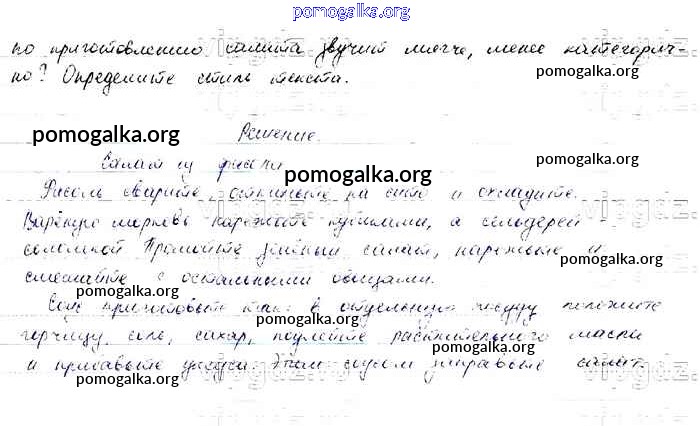 pomogalka.org
по приготовлению салата звучит мягче, менее категорич-
но? Определите стиль текста.
pomogalka.org
Решение.
pomogalka.org
Салат из фасоли
pomogalka.org
Фасоль сварите, откиньте на сито и охладите.
pomogalka.org
Варёную морковь нарежьте кубиками, а сельдерей
соломкой. Промойте зелёный салат, нарежьте и
pomogalka.org
смешайте с остальными овощами.
pomogalka.org
Соус приготовьте так: в отдельную посуду положите
pomogalka.org
горчицу, соль, сахар, подлейте растительного масла
pomogalka.org
и прибавьте уксуса. Этим соусом заправьте салат.
pomogalka.org